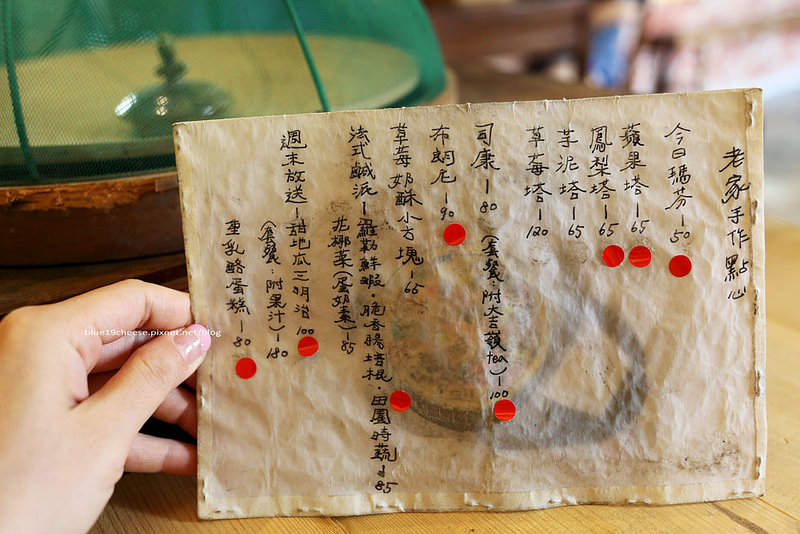 老家手作點心
今日瑪芬-50
蘋果塔-65
鳳梨塔-65
芋泥塔-65
草莓塔-120
司康-80
(套餐:附大吉嶺tea)-100
布朗尼-90
草莓奶酥小方塊-65
法式鹹派-羅勒鮮蝦·脆香腸培根·田園時蔬-85
花椰菜(蛋奶素)-85
週末放送-甜地瓜三明治100
(套餐:附果汁)-180
重乳酪蛋糕-80
blue19cheese.pixnet.net/blog